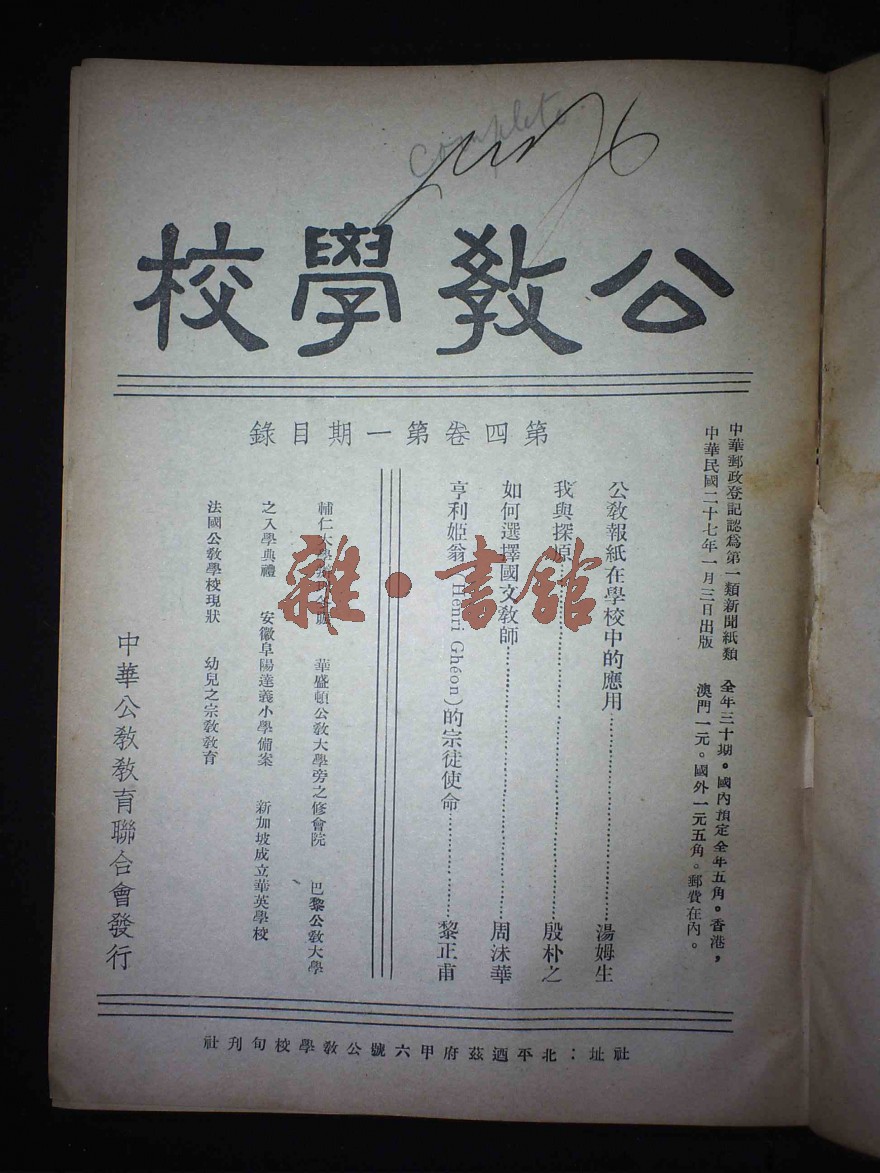 Complete
公教學校
中華郵政登記認爲第一類新聞紙類 全年三十期。國內預定全年五角。香港，
中華民國二十七年一月三日出版 澳門一元。國外一元五角。郵費在內。
第四卷第一期目錄
公教報紙在學校中的應用……湯姆生
我與探原……殷朴之
如何選擇國文教師……周沫華
亨利姬翁(Henri Ghéon)的宗徒使命……黎正甫
輔仁大學 華盛頓公教大學旁之修會院 巴黎公教大學
之入學典禮 安徽阜陽達義小學備案 新加坡成立華英學校
法國公教學校現狀 幼兒之宗教教育
中華公教教育聯合會發行
社址：北平迺茲府甲六號公教學校旬刊社
雜·書館